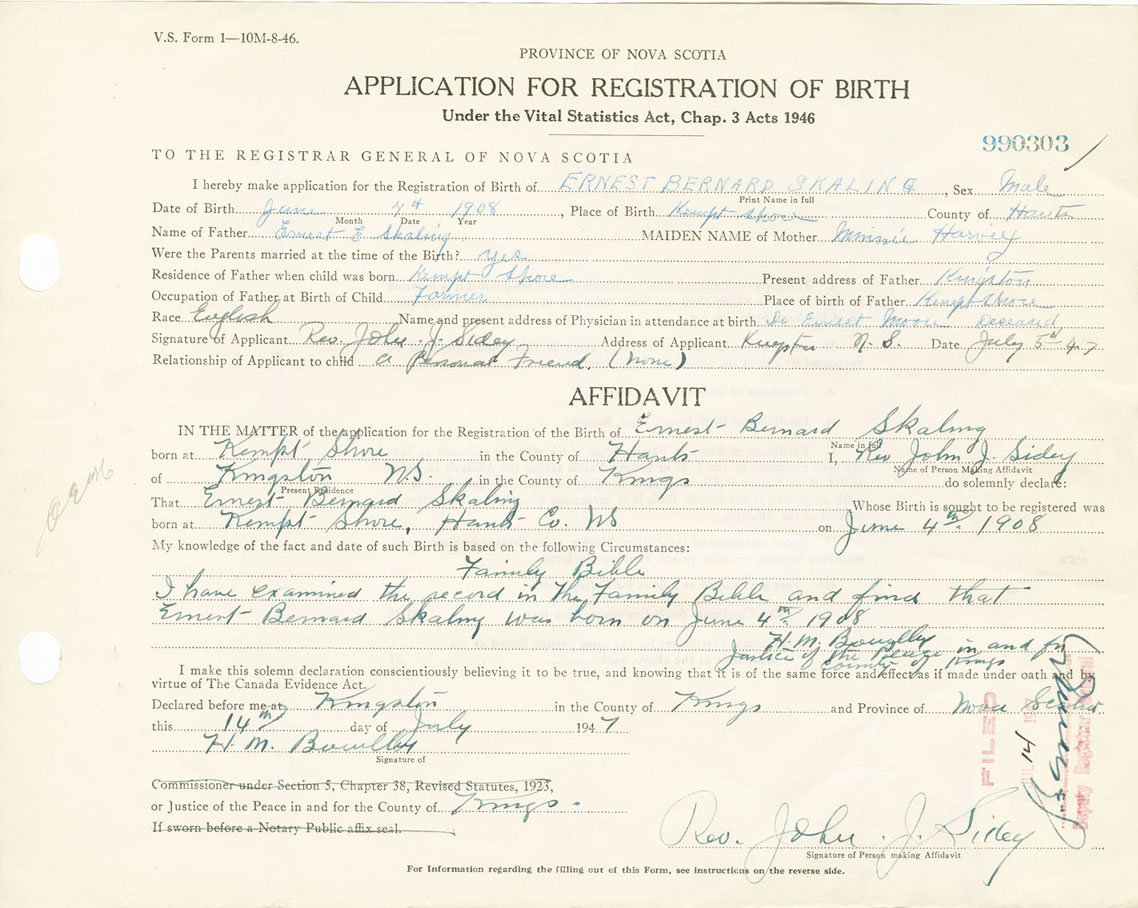 V.S. Form 1—10M-8-46.
PROVINCE OF NOVA SCOTIA
APPLICATION FOR REGISTRATION OF BIRTH
Under the Vital Statistics Act, Chap. 3 Acts 1946
990303
TO THE REGISTRAR GENERAL OF NOVA SCOTIA
I hereby make application for the Registration of Birth of ERNEST BERNARD SKALING, Sex Male
Print Name in full
Date of Birth June 4th 1908, Place of Birth Kempt Shore County of Hants
Month Date Year
Name of Father Ernest E Skaling MAIDEN NAME of Mother Minnie Harvey
Were the Parents married at the time of the Birth? yes
Residence of Father when child was born Kempt Shore Present address of Father Kingston
Occupation of Father at Birth of Child Farmer Place of birth of Father Kempt Shore
Race English Name and present address of Physician in attendance at birth Dr Ernest Deceased
Signature of Applicant Rev. John J. Sidey Address of Applicant Kingston N.S. Date July 5th 47
Relationship of Applicant to child a Personal Friend. (None)
AFFIDAVIT
IN THE MATTER of the application for the Registration of the Birth of Ernest Bernard Skaling
Name in full
born at Kempt Shore in the County of Hants I, Rev John J. Sidey
Name of Person Making Affidavit
of Kingston N.S. in the County of Kings do solemnly declare:
Present Residence
That Ernest Bernard Skaling Whose Birth is sought to be registered was
born at Kempt Shore, Hants Co. NS on June 4th 1908
My knowledge of the fact and date of such Birth is based on the following Circumstances:
Family Bible
I have examined the record in the Family Bible and find that
Ernest Bernard Skaling was born on June 4th 1908
H. M.
Justice of the Peace in and for
County of Kings
I make this solemn declaration conscientiously believing it to be true, and knowing that it is of the same force and effect as if made under oath and by
virtue of The Canada Evidence Act.
Declared before me at Kingston in the County of Kings and Province of Nova Scotia
this 14th day of July 1947
H. M.
Signature of
Commissioner under Section 5, Chapter 38, Revised Statutes, 1923,
or Justice of the Peace in and for the County of Kings.
If sworn before a Notary Public affix seal.
FILED
JUL 14
Deputy Registrar
Rev. John J. Sidey
Signature of Person making Affidavit
For Information regarding the filling out of this Form, see instructions on the reverse side.